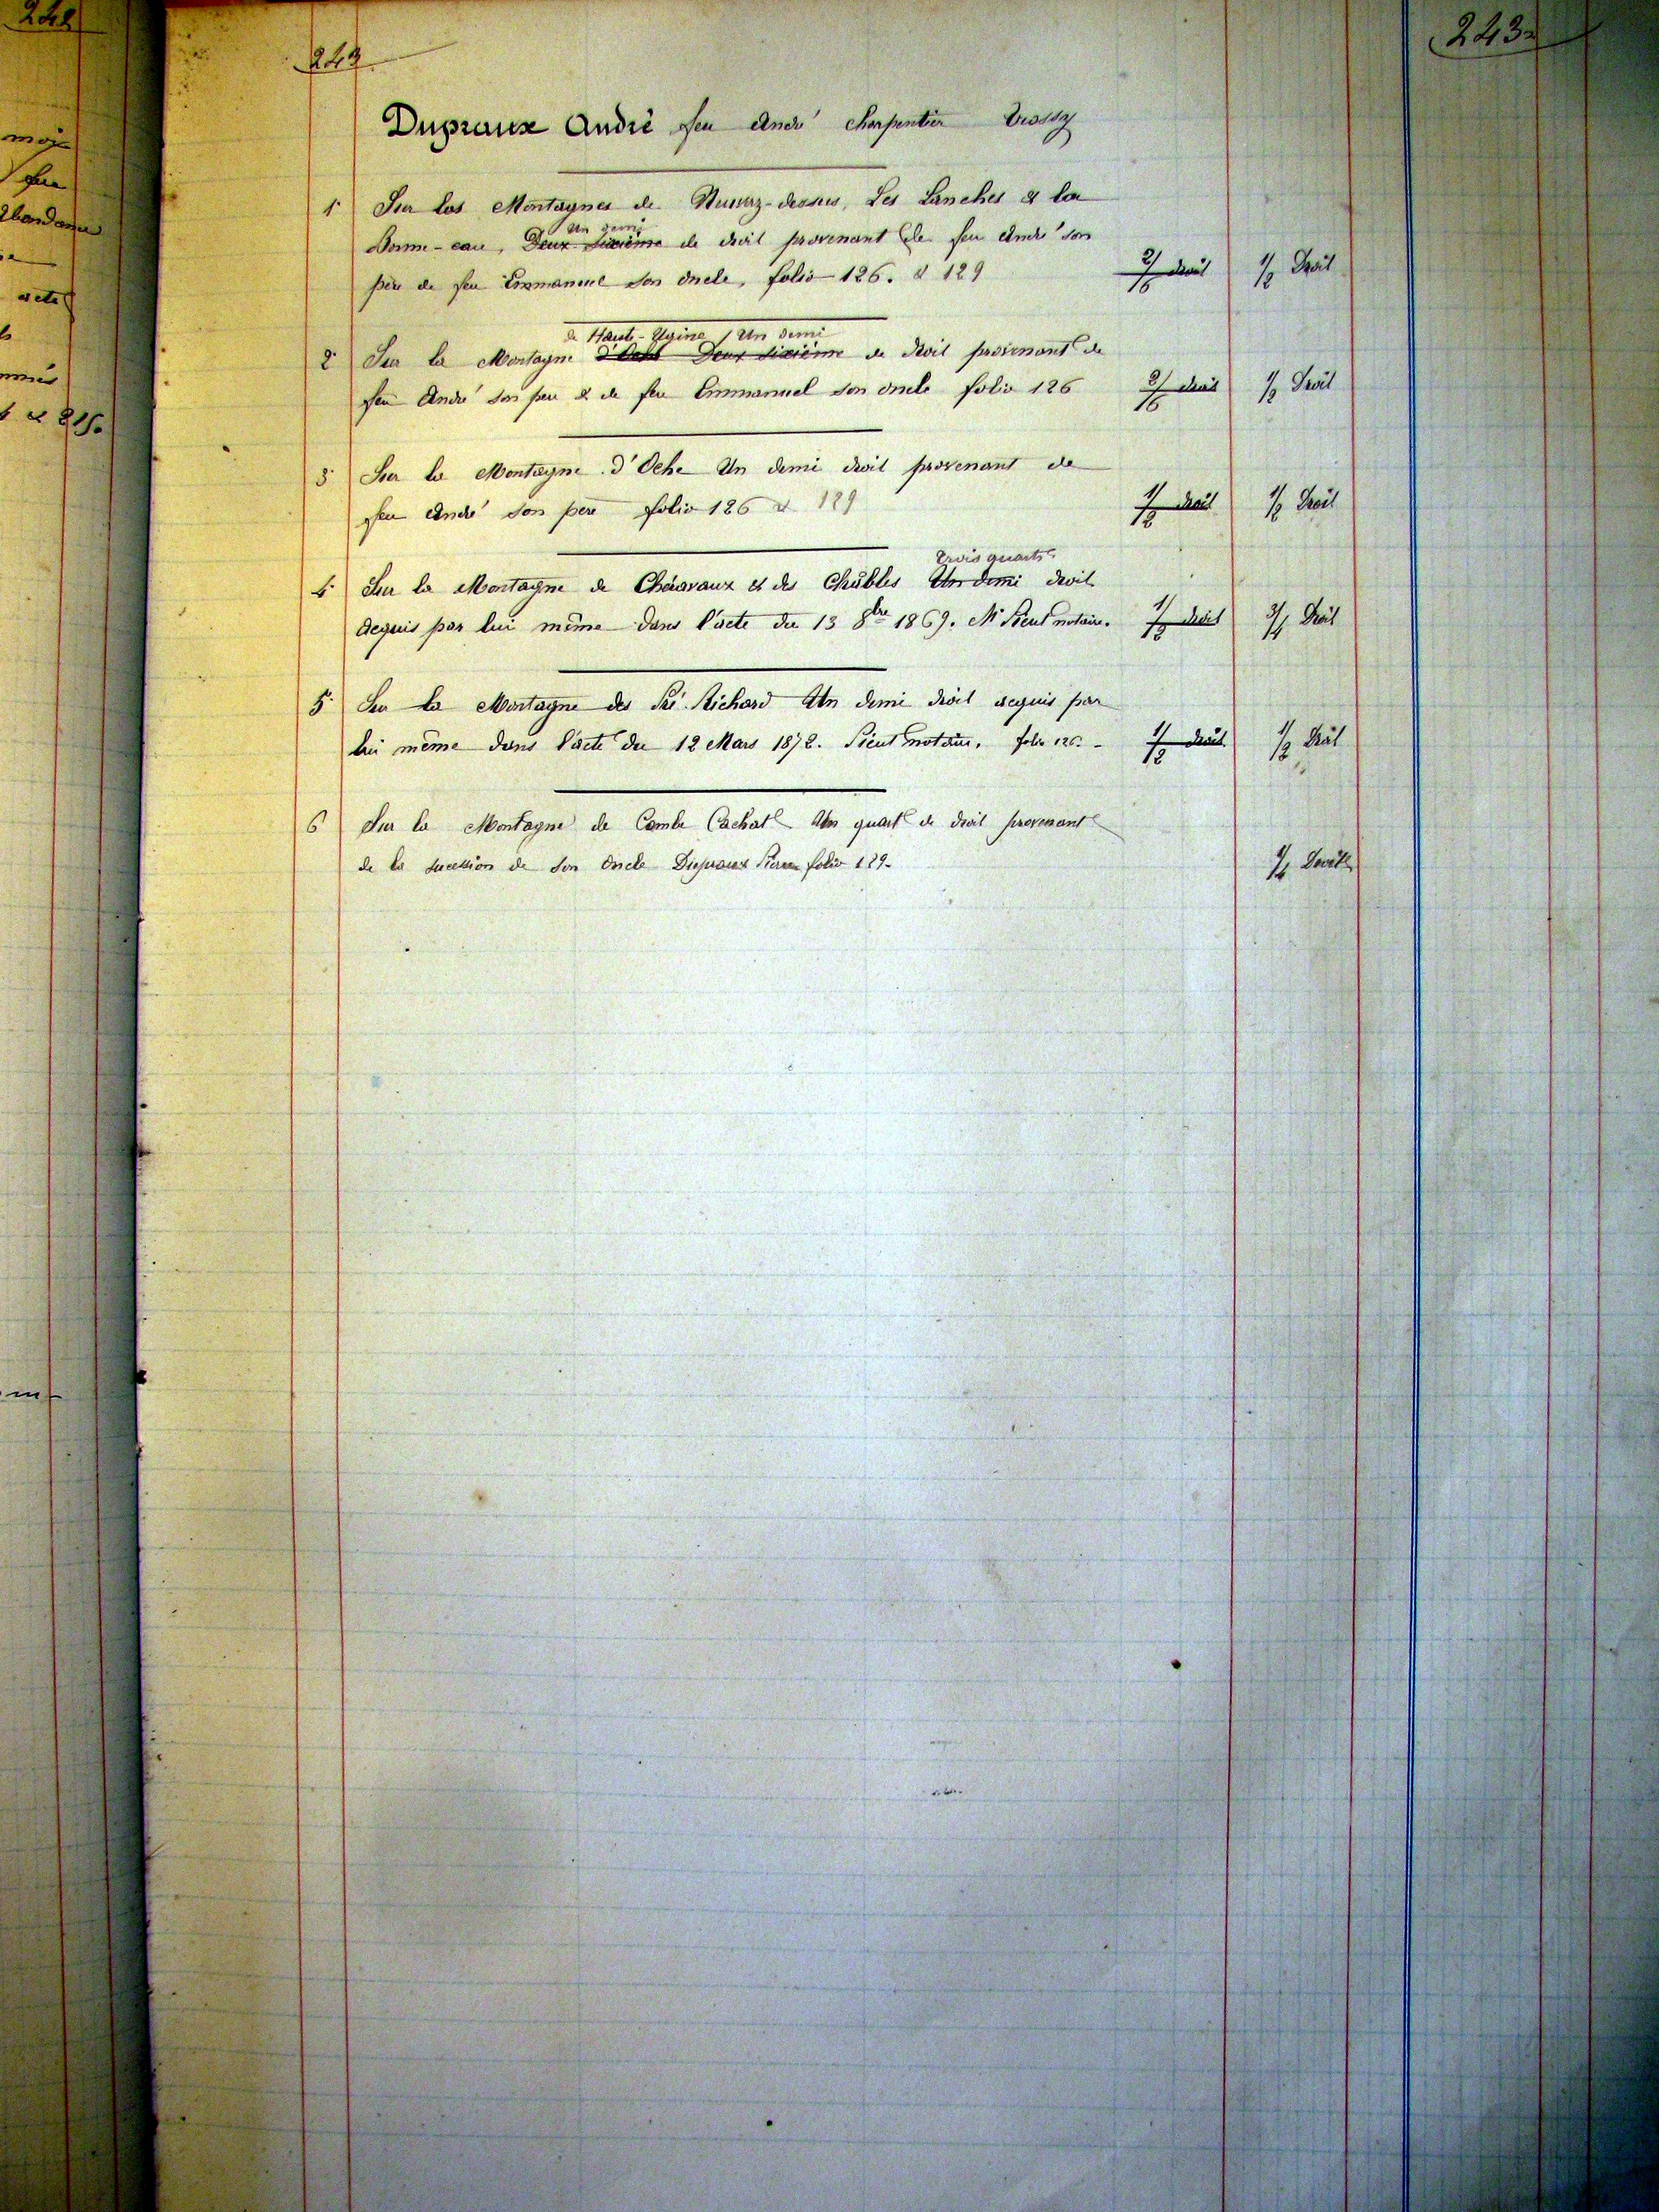 243
243
Dupraux André feu André charpentier Trossy
1 Sur les Montagnes de Neuvaz-dessus, Les Lanches & la
un demi
Bonne-eau, Deux Sixième de droit provenant de feu André son
père de feu Emmanuel son oncle, folio 126. & 129 2/6 droit 1/2 Droit
de Haute-Ugine Un demi
2 Sur la Montagne d'Oche Deux sixième de droit provenant de
feu André son père & de feu Emmanuel son oncle folio 126 2/6 droit 1/2 Droit
3 Sur la Montagne d'Oche Un demi droit provenant de
feu André son père folio 126 & 129 1/2 droit 1/2 Droit
trois quarts
4 Sur la Montagne de Chéravaux et des Châbles Un demi droit
acquis par lui même dans l'acte du 13 8bre 1869. Me notaire. 1/2 droit 3/4 Droit
5 Sur la Montagne des Richard Un demi droit acquis par
lui même dans l'acte du 12 Mars 1872. notaire. folio 126. 1/2 droit 1/2 Droit
6 Sur la Montagne de Combe Cachat Un quart de droit provenant
de la succession de son oncle Dupraux Pierre folio 129. 1/4 Droit
242
& 215.